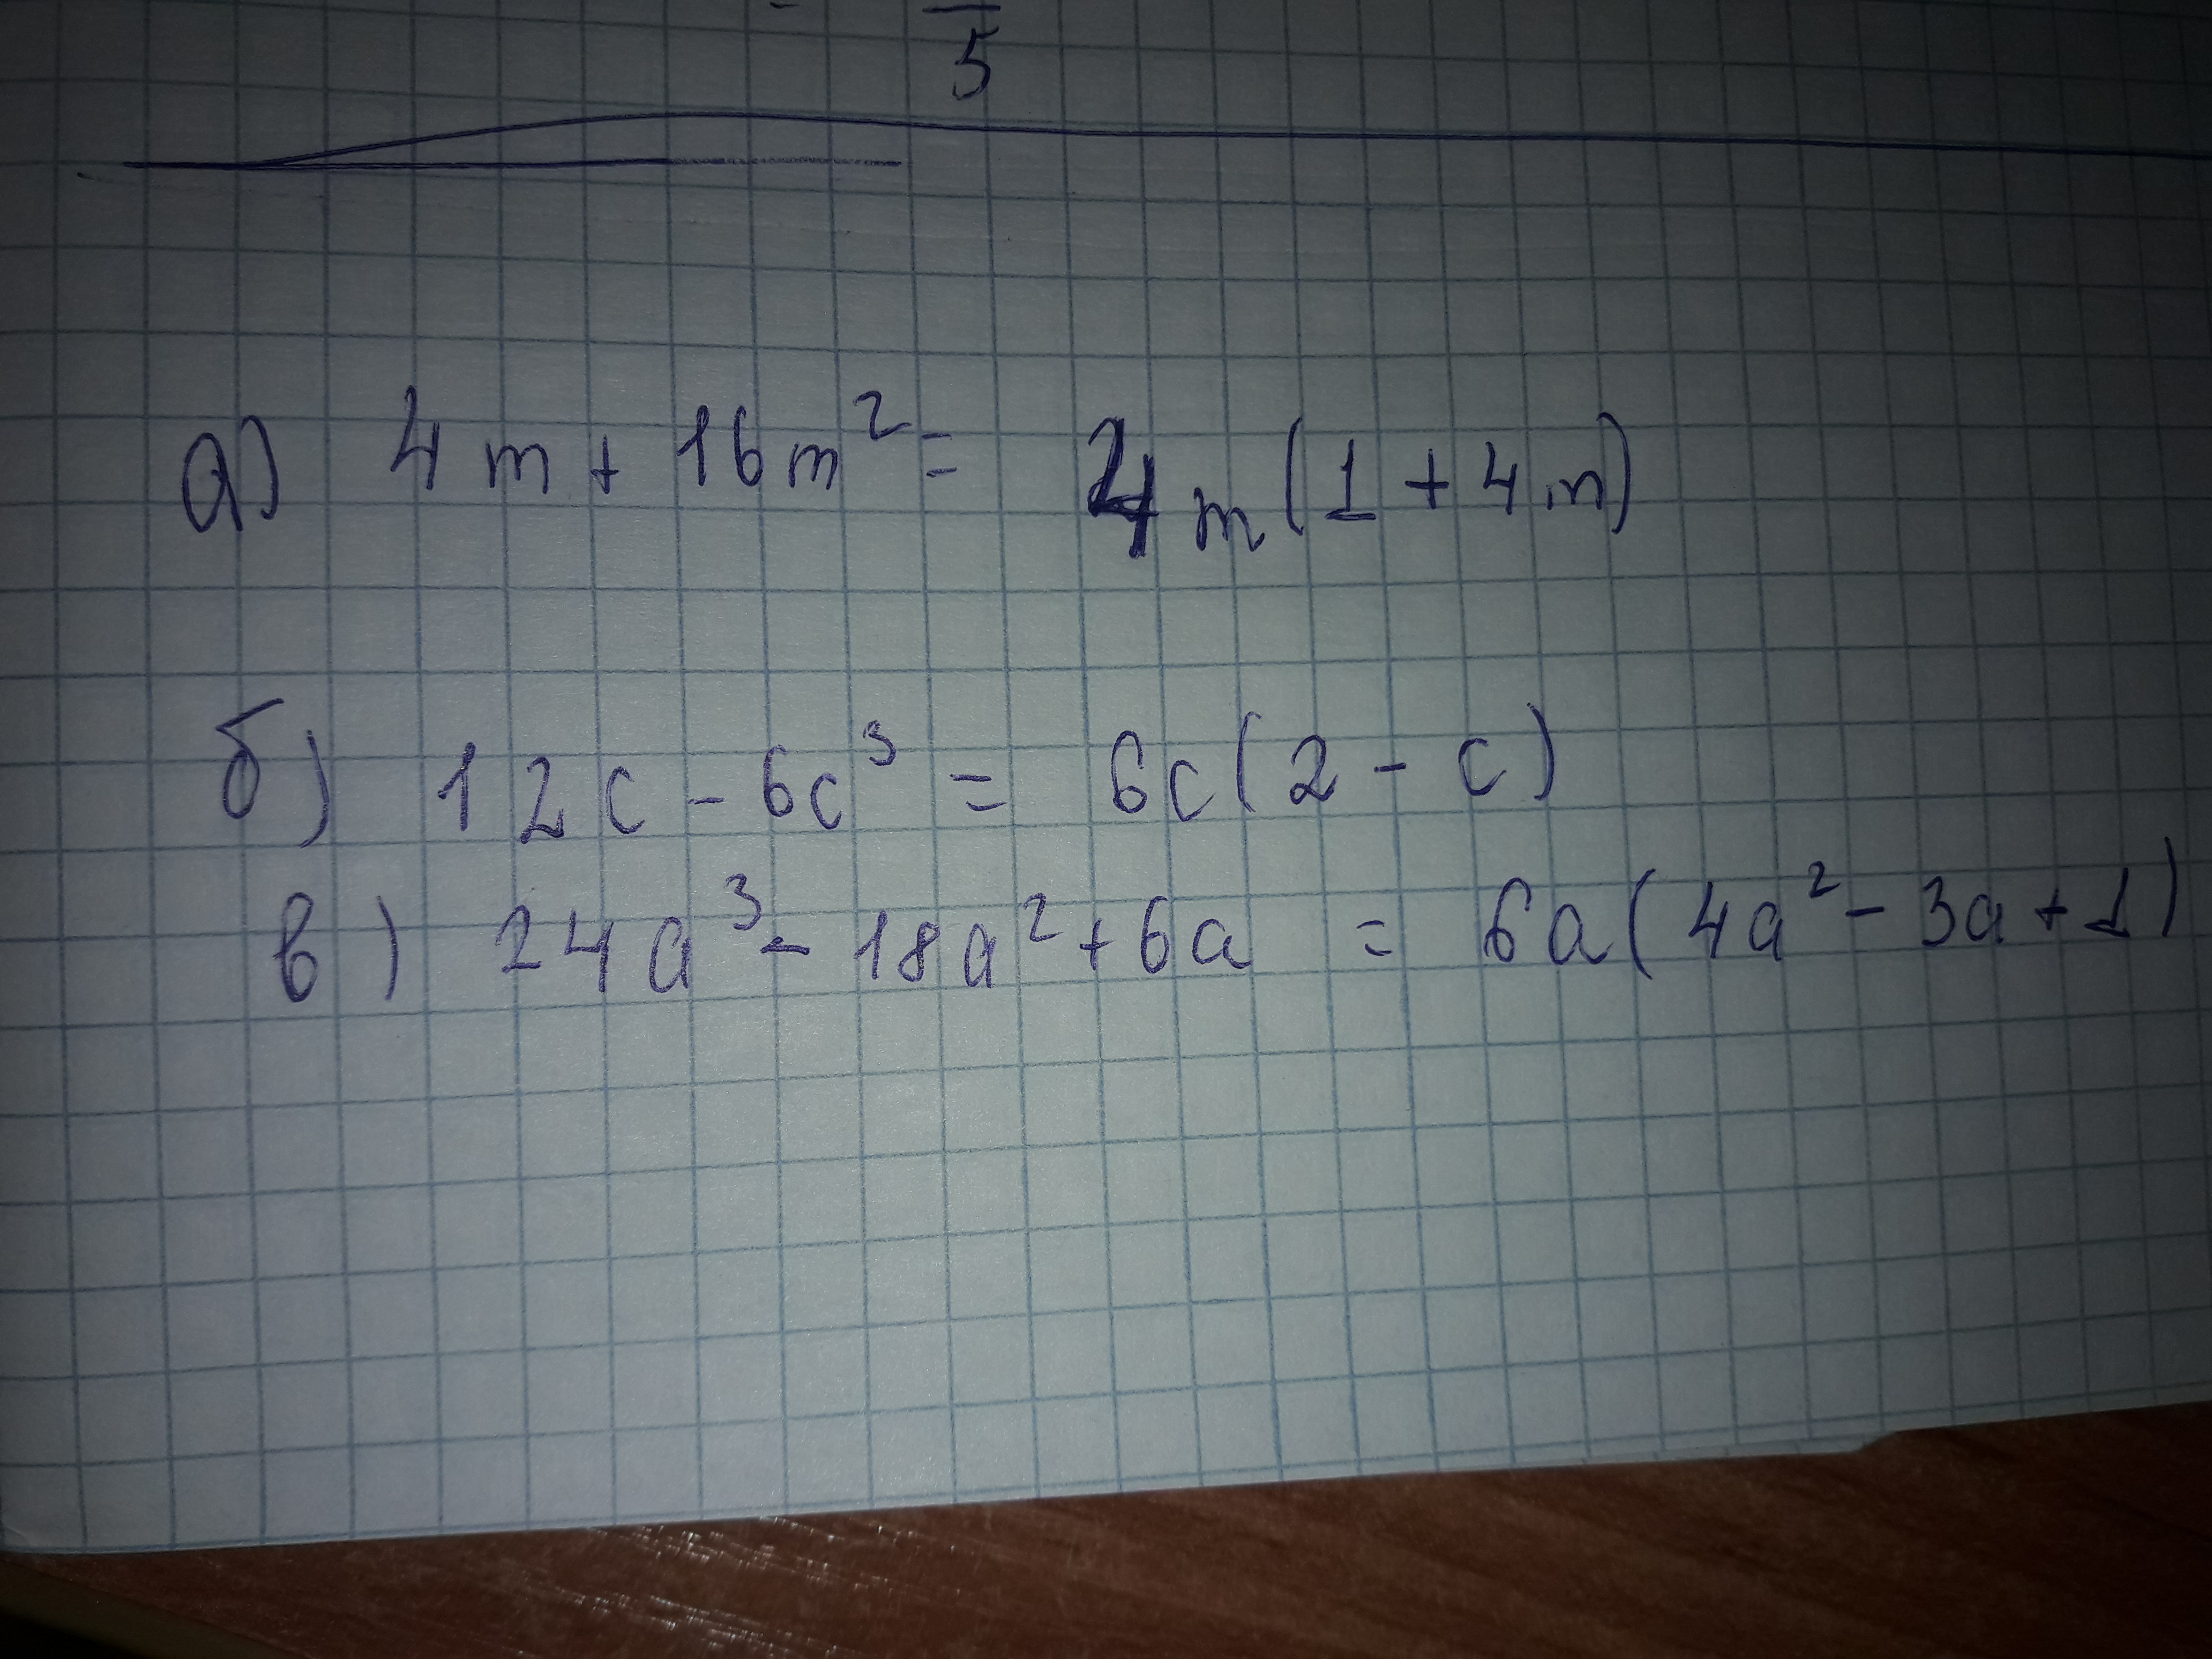 5
а) 4m + 16m² = 4m(1 + 4m)
б) 12c - 6c³ = 6c(2 - c)
в) 24a³ - 18a² + 6a = 6a(4a² - 3a + 1)